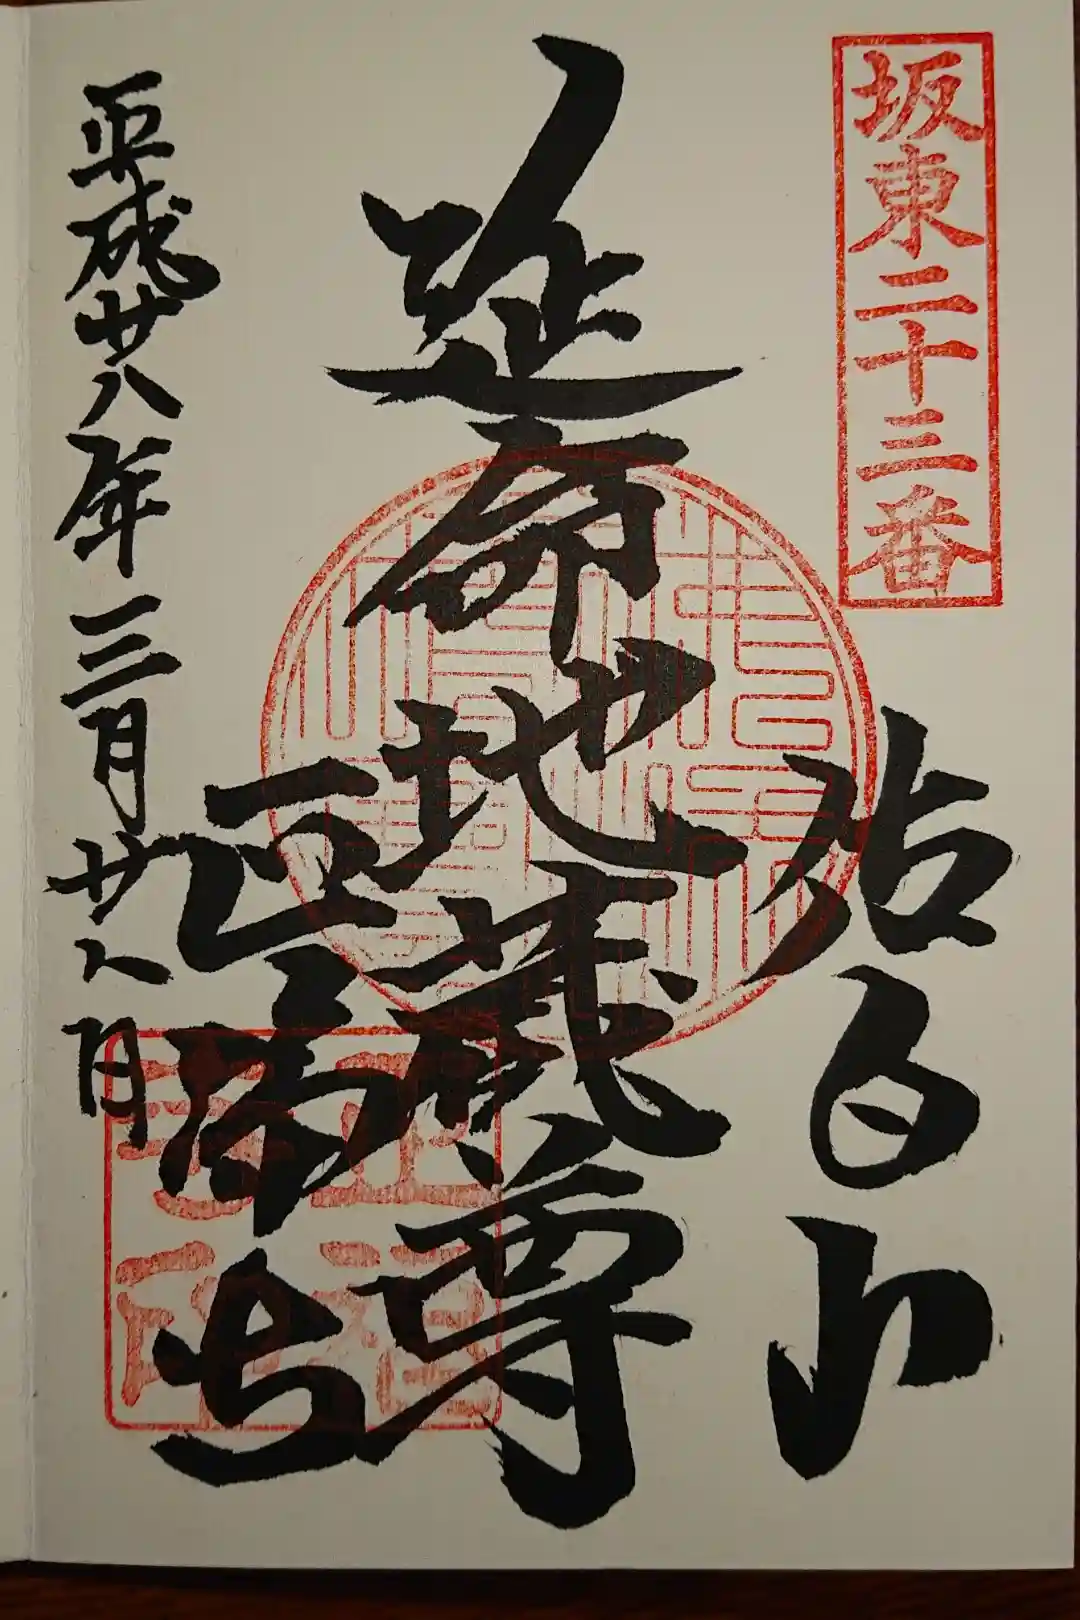 坂東二十三番
佐白山
延命地蔵尊
正福寺
平成廿八年三月廿八日